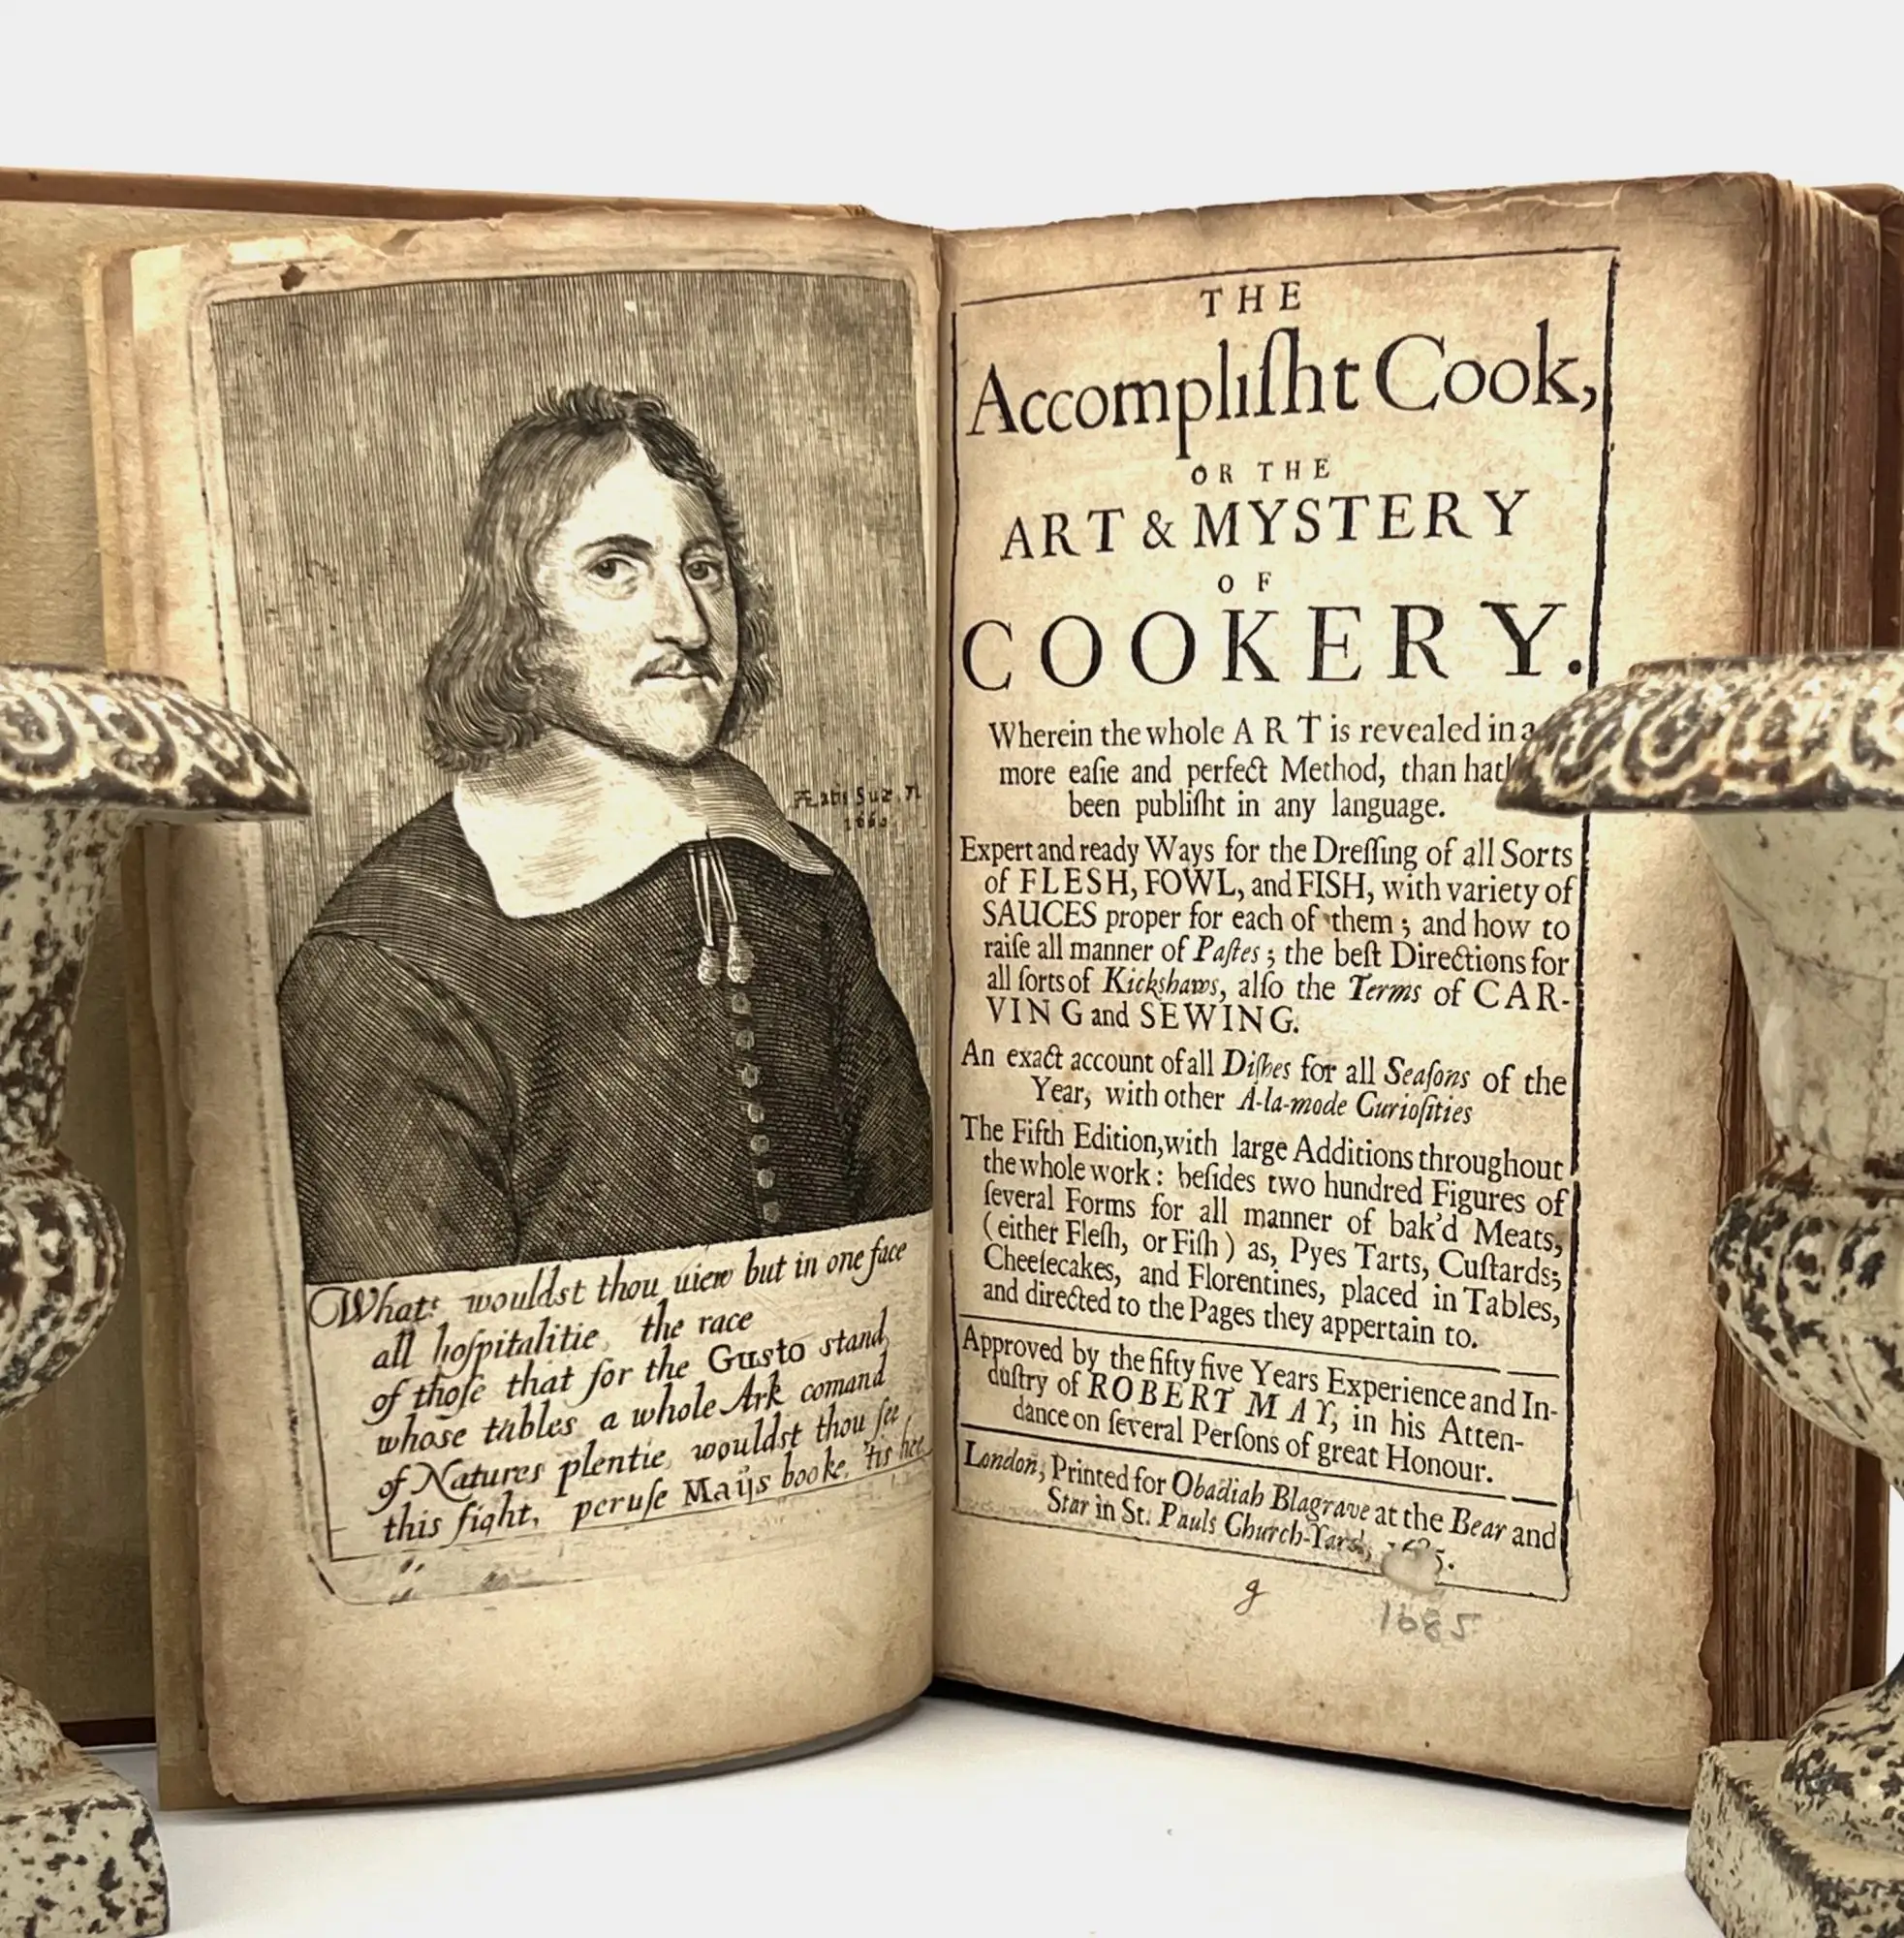 Ætatis Suæ. 71
1660.
What: wouldst thou view but in one face
all hoſpitalitie, the race
of thoſe that for the Gusto stand,
whose tables a whole Ark comand
of Natures plentie, wouldst thou ſee
this ſight, peruſe Maijs booke, 'tis hee
THE
Accompliſht Cook,
OR THE
ART & MYSTERY
OF
COOKERY.
Wherein the whole ART is revealed in a
more eaſie and perfect Method, than
been publiſht in any language.
Expert and ready Ways for the Dreſſing of all Sorts
of FLESH, FOWL, and FISH, with variety of
SAUCES proper for each of them; and how to
raiſe all manner of Paſtes; the beſt Directions for
all ſorts of Kickshaws, alſo the Terms of CAR-
VING and SEWING.
An exact account of all Diſhes for all Seaſons of the
Year, with other A-la-mode Curioſities
The Fifth Edition, with large Additions throughout
the whole work: beſides two hundred Figures of
ſeveral Forms for all manner of bak'd Meats,
(either Fleſh, or Fiſh) as, Pyes Tarts, Cuſtards;
Cheeſecakes, and Florentines, placed in Tables,
and directed to the Pages they appertain to.
Approved by the fifty five Years Experience and In-
duſtry of ROBERT MAY, in his Atten-
dance on ſeveral Perſons of great Honour.
London, Printed for Obadiah Blagrave at the Bear and
Star in St. Pauls Church-Yard,
g
1685